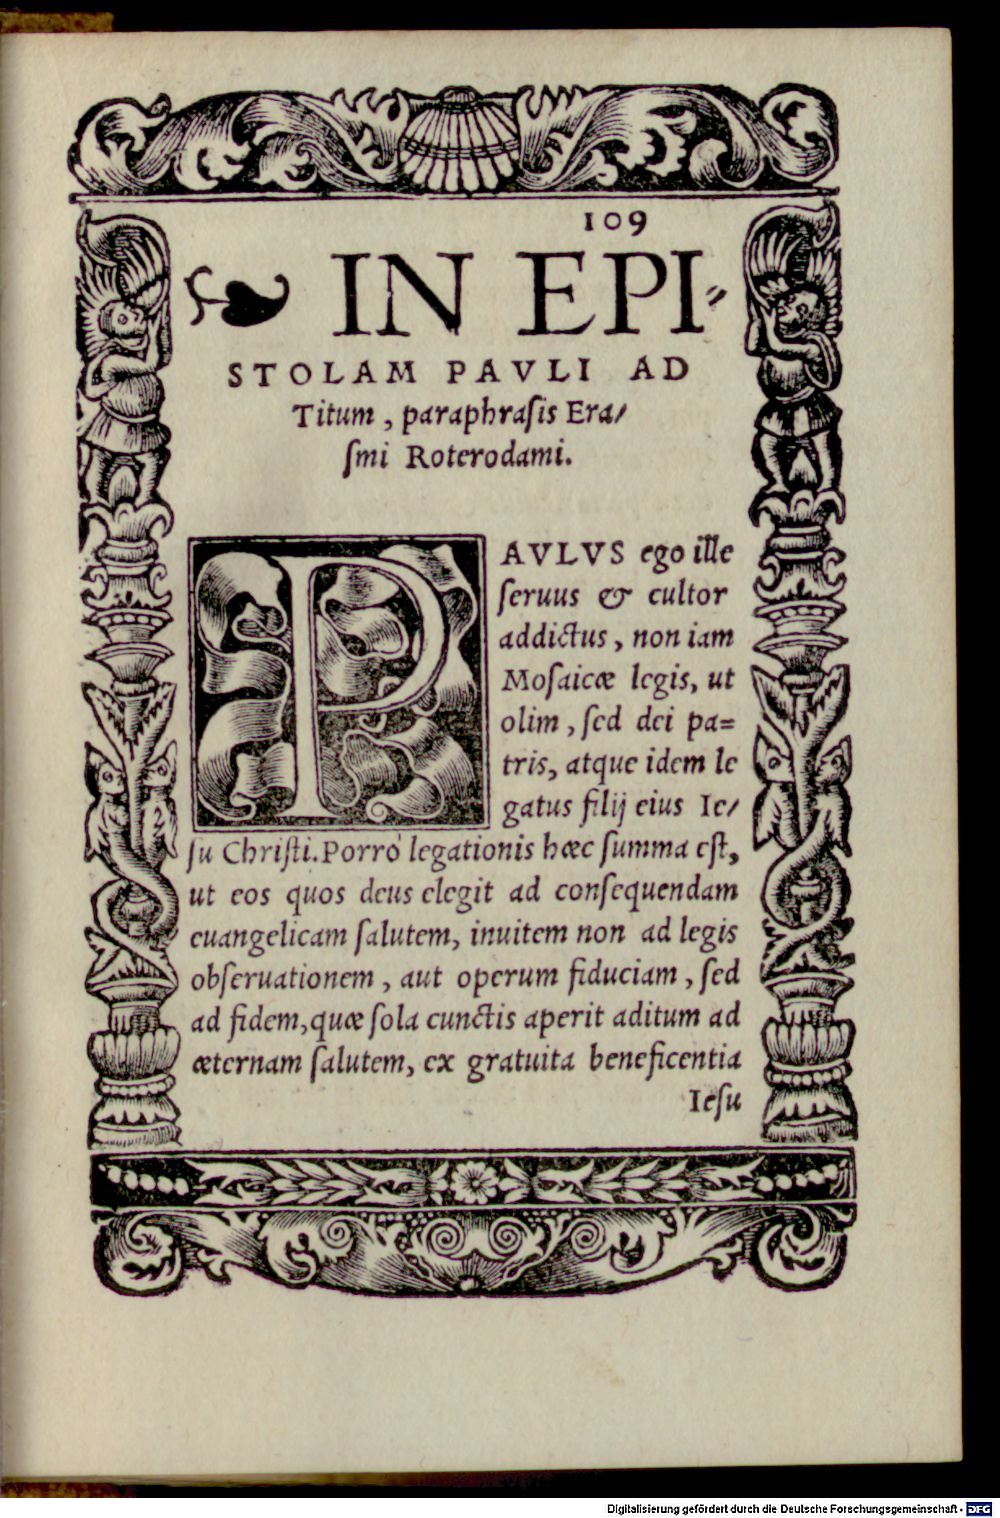 109
IN EPI⸗
STOLAM PAVLI AD
Titum, paraphraſis Era/
ſmi Roterodami.
PAVLVS ego ille
ſeruus & cultor
addictus, non iam
Moſaicæ legis, ut
olim, ſed dei pa=
tris, atque idem le
gatus filij eius Ie/
ſu Chriſti. Porrò legationis hæc ſumma eſt,
ut eos quos deus elegit ad conſequendam
euangelicam ſalutem, inuitem non ad legis
obſeruationem, aut operum fiduciam, ſed
ad fidem, quæ ſola cunctis aperit aditum ad
æternam ſalutem, ex gratuita beneficentia
Ieſu
Digitalisierung gefördert durch die Deutsche Forschungsgemeinschaft - DFG